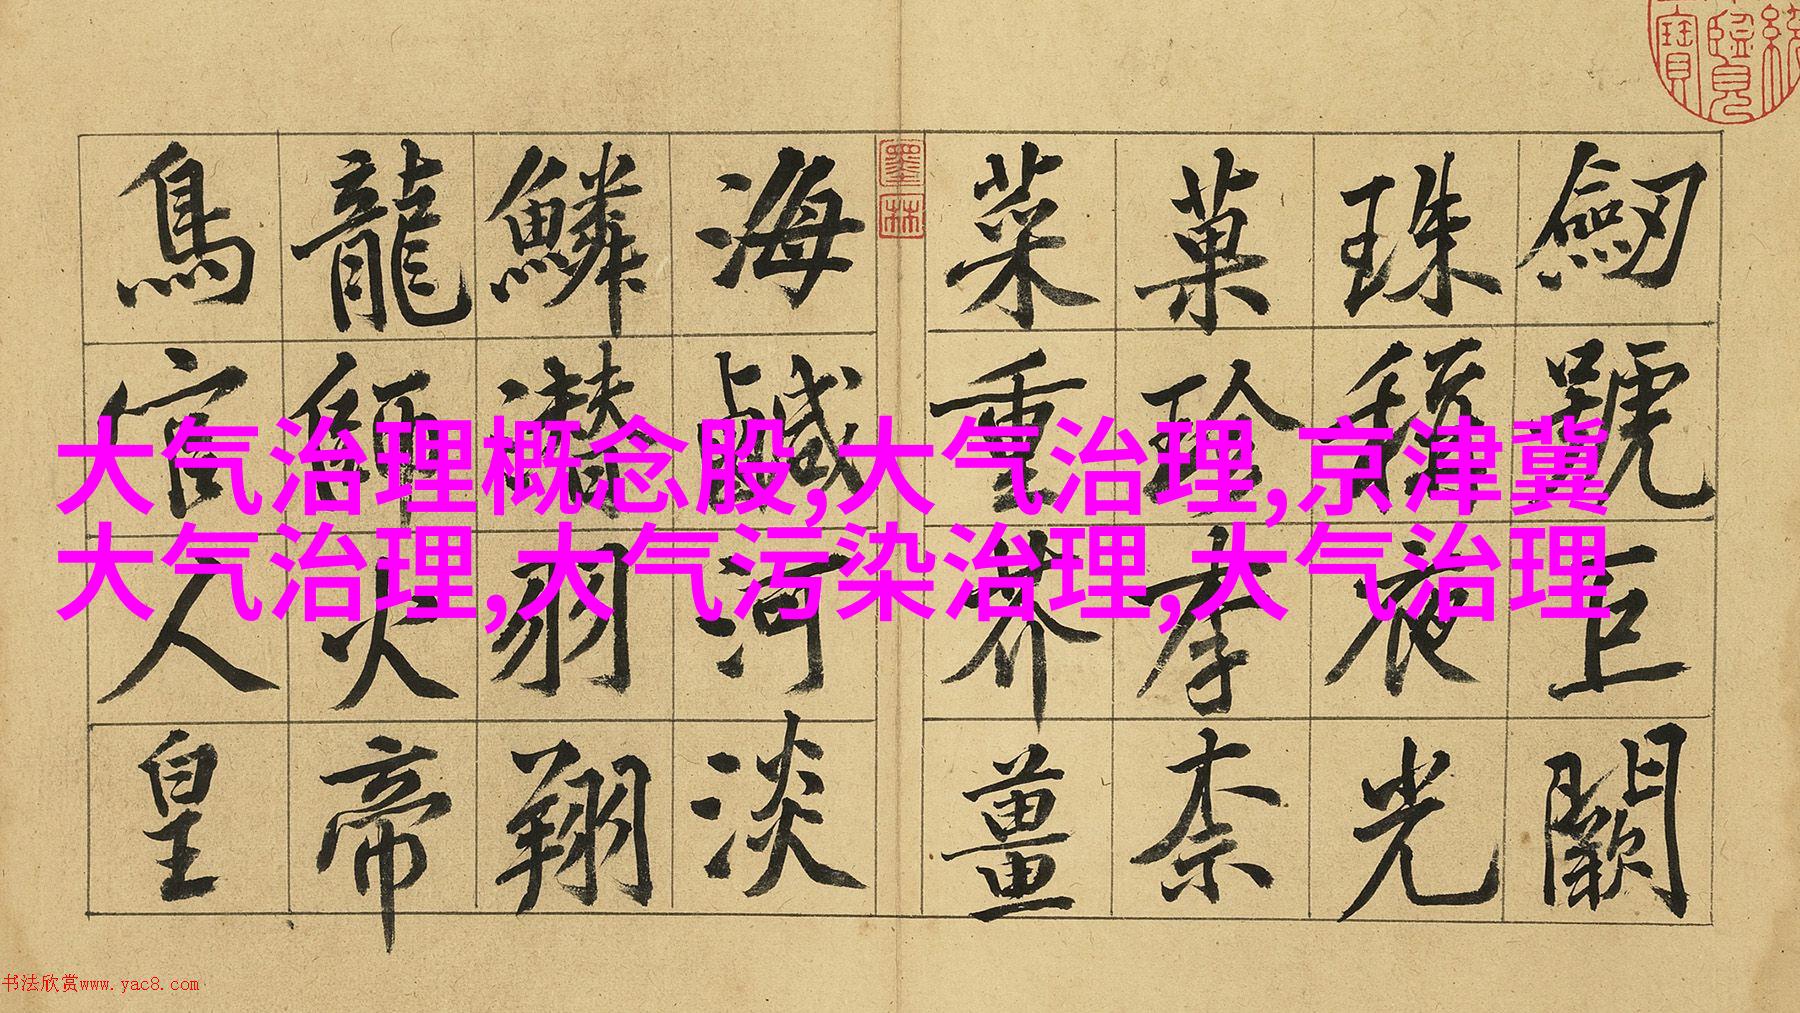 劒號巨闕
珠稱夜光
菓珍李柰
菜重芥薑
墨林
海鹹河淡
鱗潛羽翔
龍師火帝
鳥官人皇
大气治理概念股,大气治理,京津冀
大气治理,大气污染治理,大气治理
书法欣赏www.yac8.com